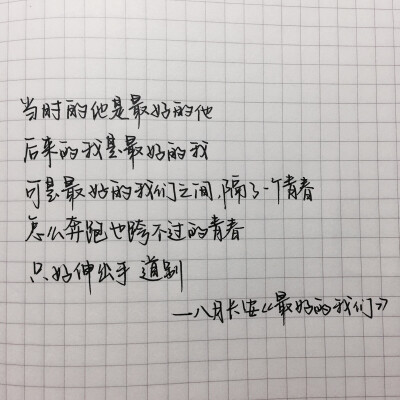 当时的他是最好的他
后来的我是最好的我
可是最好的我们之间,隔了一个青春
怎么奔跑也跨不过的青春
只好伸出手 道别
—八月长安《最好的我们》